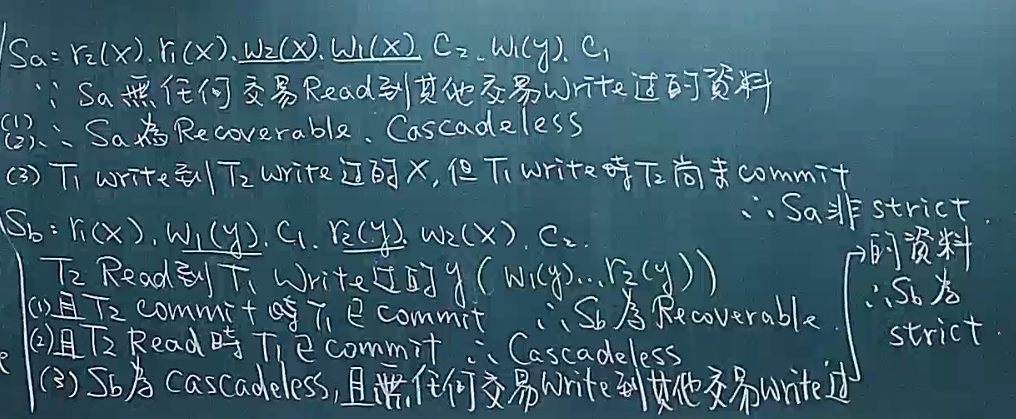 Sa: r₂(x). r₁(x). w₂(x). w₁(x) C₂. w₁(y). C₁
∵ Sa 無任何交易Read到其他交易Write过的資料
(1)
(2)∴ Sa為Recoverable、Cascadeless
(3) T₁ write到 T₂ write过的X, 但T₁ write時T₂尚未commit
∴ Sa非strict.
Sb: r₁(x). w₁(y). C₁. r₂(y). w₂(x). C₂.
T₂ Read到T₁ Write过的y ( w₁(y)...r₂(y))
(1)且T₂ commit時T₁已commit ∴Sb為Recoverable.
(2)且T₂ Read時T₁已commit ∴ Cascadeless
(3) Sb為cascadeless,且無任何交易write到其他交易write过
→的資料
∴Sb為
strict.